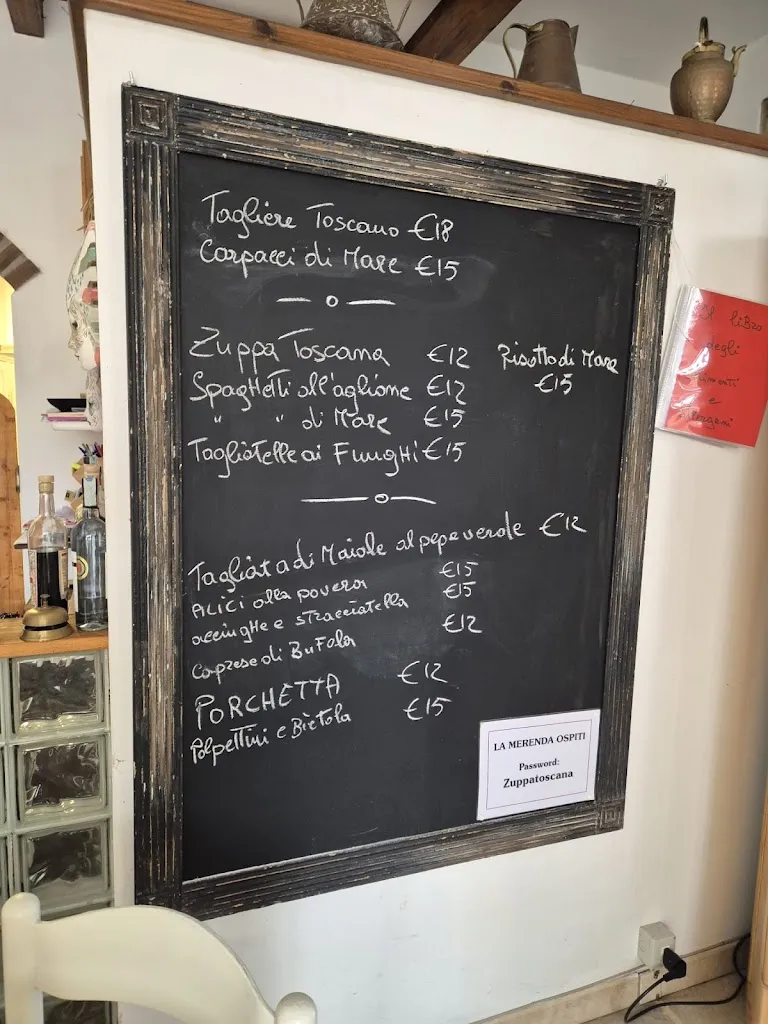 Tagliere Toscano €18
Carpacci di Mare €15
Zuppa Toscana €12
Risotto di Mare
€15
Spaghetti all'aglione €12
" " di Mare €15
Tagliatelle ai Funghi €15
Tagliata di Maiale al pepe verde €12
Alici alla povera €15
acciughe e stracciatella €15
caprese di Bufala €12
PORCHETTA €12
Polpettini e Bietola €15
LA MERENDA OSPITI
Password:
Zuppatoscana
Il libro
degli
e